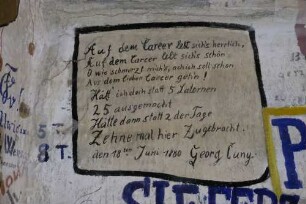 Auf dem Career lebt sich's herrlich,
Auf dem Career lebt sichs schön
O wie schmerzt mich's, ach ich soll schon
Aus dem lieben Career gehn!
Hätt' ich doch statt 5 Laternen
25 ausgemacht
Hätte dann statt 2 der Tage
Zehnemal hier zugebracht.
den 18ten Juni 1880 Georg Cuny.
5 T
8 T.